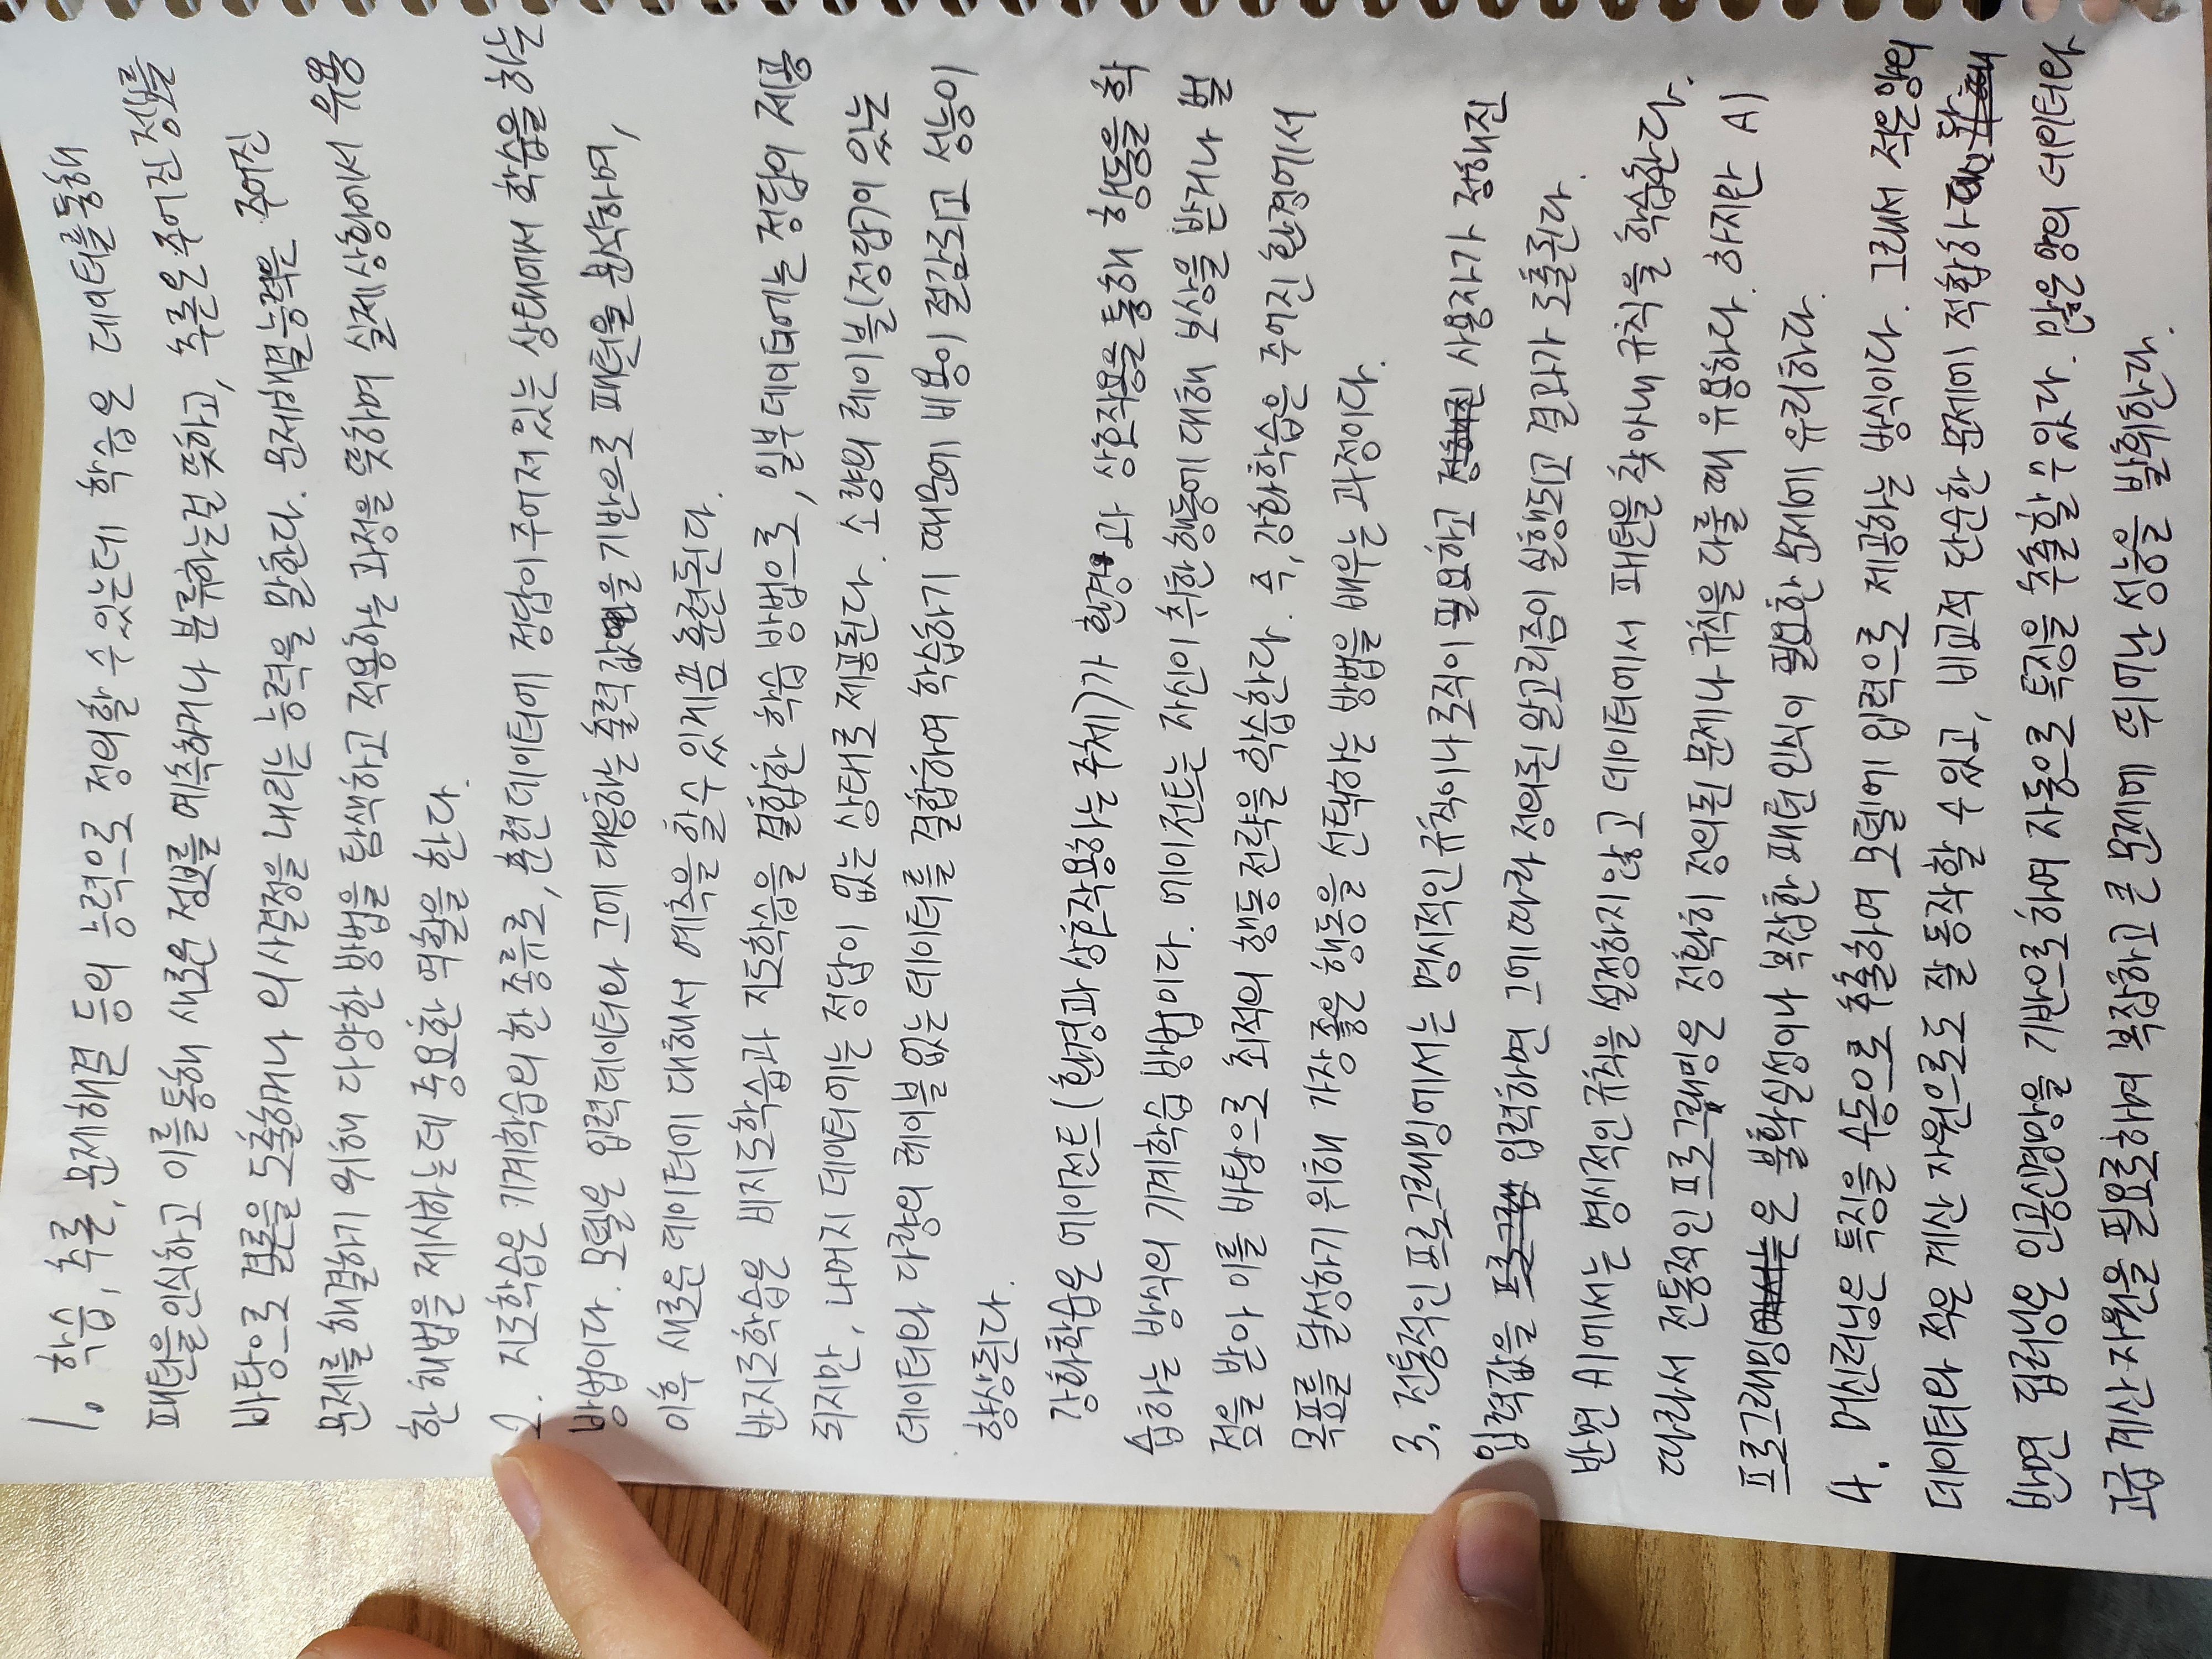 1. 학습, 추론, 문제해결 등의 능력으로 정의할 수 있는데 학습은 데이터를 통해
패턴을 인식하고 이를 통해 새로운 정보를 예측하거나 분류하는걸 뜻하고, 추론은 주어진 정보를
바탕으로 결론을 도출하거나 의사결정을 내리는 능력을 말한다. 문제해결능력은 주어진
문제를 해결하기 위해 다양한 방법을 탐색하고 적용하는 과정을 뜻하며 실제상황에서 유용
한 해법을 제시하는데 중요한 역할을 한다.
2. 지도학습은 기계학습의 한 종류로, 훈련데이터에 정답이 주어져 있는 상태에서 학습을 하는
방법이다. 모델은 입력데이터와 그에 대응하는 출력값을 기반으로 패턴을 분석하며,
이후 새로운 데이터에 대해서 예측을 할수 있게끔 훈련된다.
반지도학습은 비지도학습과 지도학습을 결합한 학습 방법으로, 일부 데이터에는 정답이 제공
되지만, 나머지 데이터에는 정답이 없는 상태로 제공된다. 소량의 레이블(정답)이 있는
데이터와 다량의 레이블 없는 데이터를 결합하여 학습하기 때문에 비용이 절감되고 성능이
향상된다.
강화학습은 에이전트(환경과 상호작용하는 주체)가 환경과 상호작용을 통해 행동을 학
습하는 방식의 기계학습 방법이다. 에이전트는 자신이 취한 행동에 대해 보상을 받거나 벌
점을 받아 이를 바탕으로 최적의 행동 전략을 학습한다. 즉, 강화학습은 주어진 환경에서
목표를 달성하기 위해 가장 좋은 행동을 선택하는 방법을 배우는 과정이다.
3. 전통적인 프로그래밍에서는 명시적인 규칙이나 로직이 필요하고 정해진 사용자가 정해진
입력값을 프로그램 입력하면 그에 따라 정의된 알고리즘이 실행되고 결과가 도출된다.
반면 AI에서는 명시적인 규칙을 설정하지 않고 데이터에서 패턴을 찾아내 규칙을 학습한다.
따라서 전통적인 프로그래밍은 정확히 정의된 문제나 규칙을 다룰 때 유용하다. 하지만 AI
프로그래밍에서는 은 불확실성이나 복잡한 패턴 인식이 필요한 문제에 유리하다.
4. 머신러닝은 특징을 수동으로 추출하여 모델에 입력으로 제공하는 방식이다. 그래서 적은 양의
데이터와 적은 계산 자원으로도 잘 동작할 수 있고, 비교적 단순한 문제에 적합하
반면 딥러닝은 인공신경망을 기반으로 하여 자동으로 특징을 추출할 수 있다. 많은 양의 데이터와
고급 계산 자원을 필요로하며 복잡하고 큰 문제에 뛰어난 성능을 발휘한다.